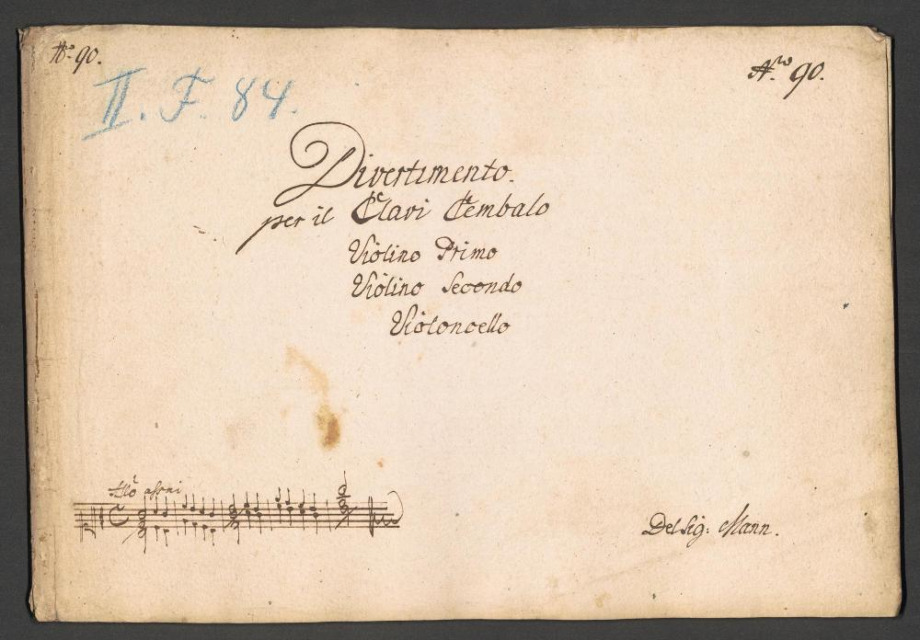 No. 90.
Nro 90.
II. F. 84.
Divertimento.
per il Clavi Cembalo
Violino Primo
Violino Secondo
Violoncello
Allo assai
Del Sig: Mann.